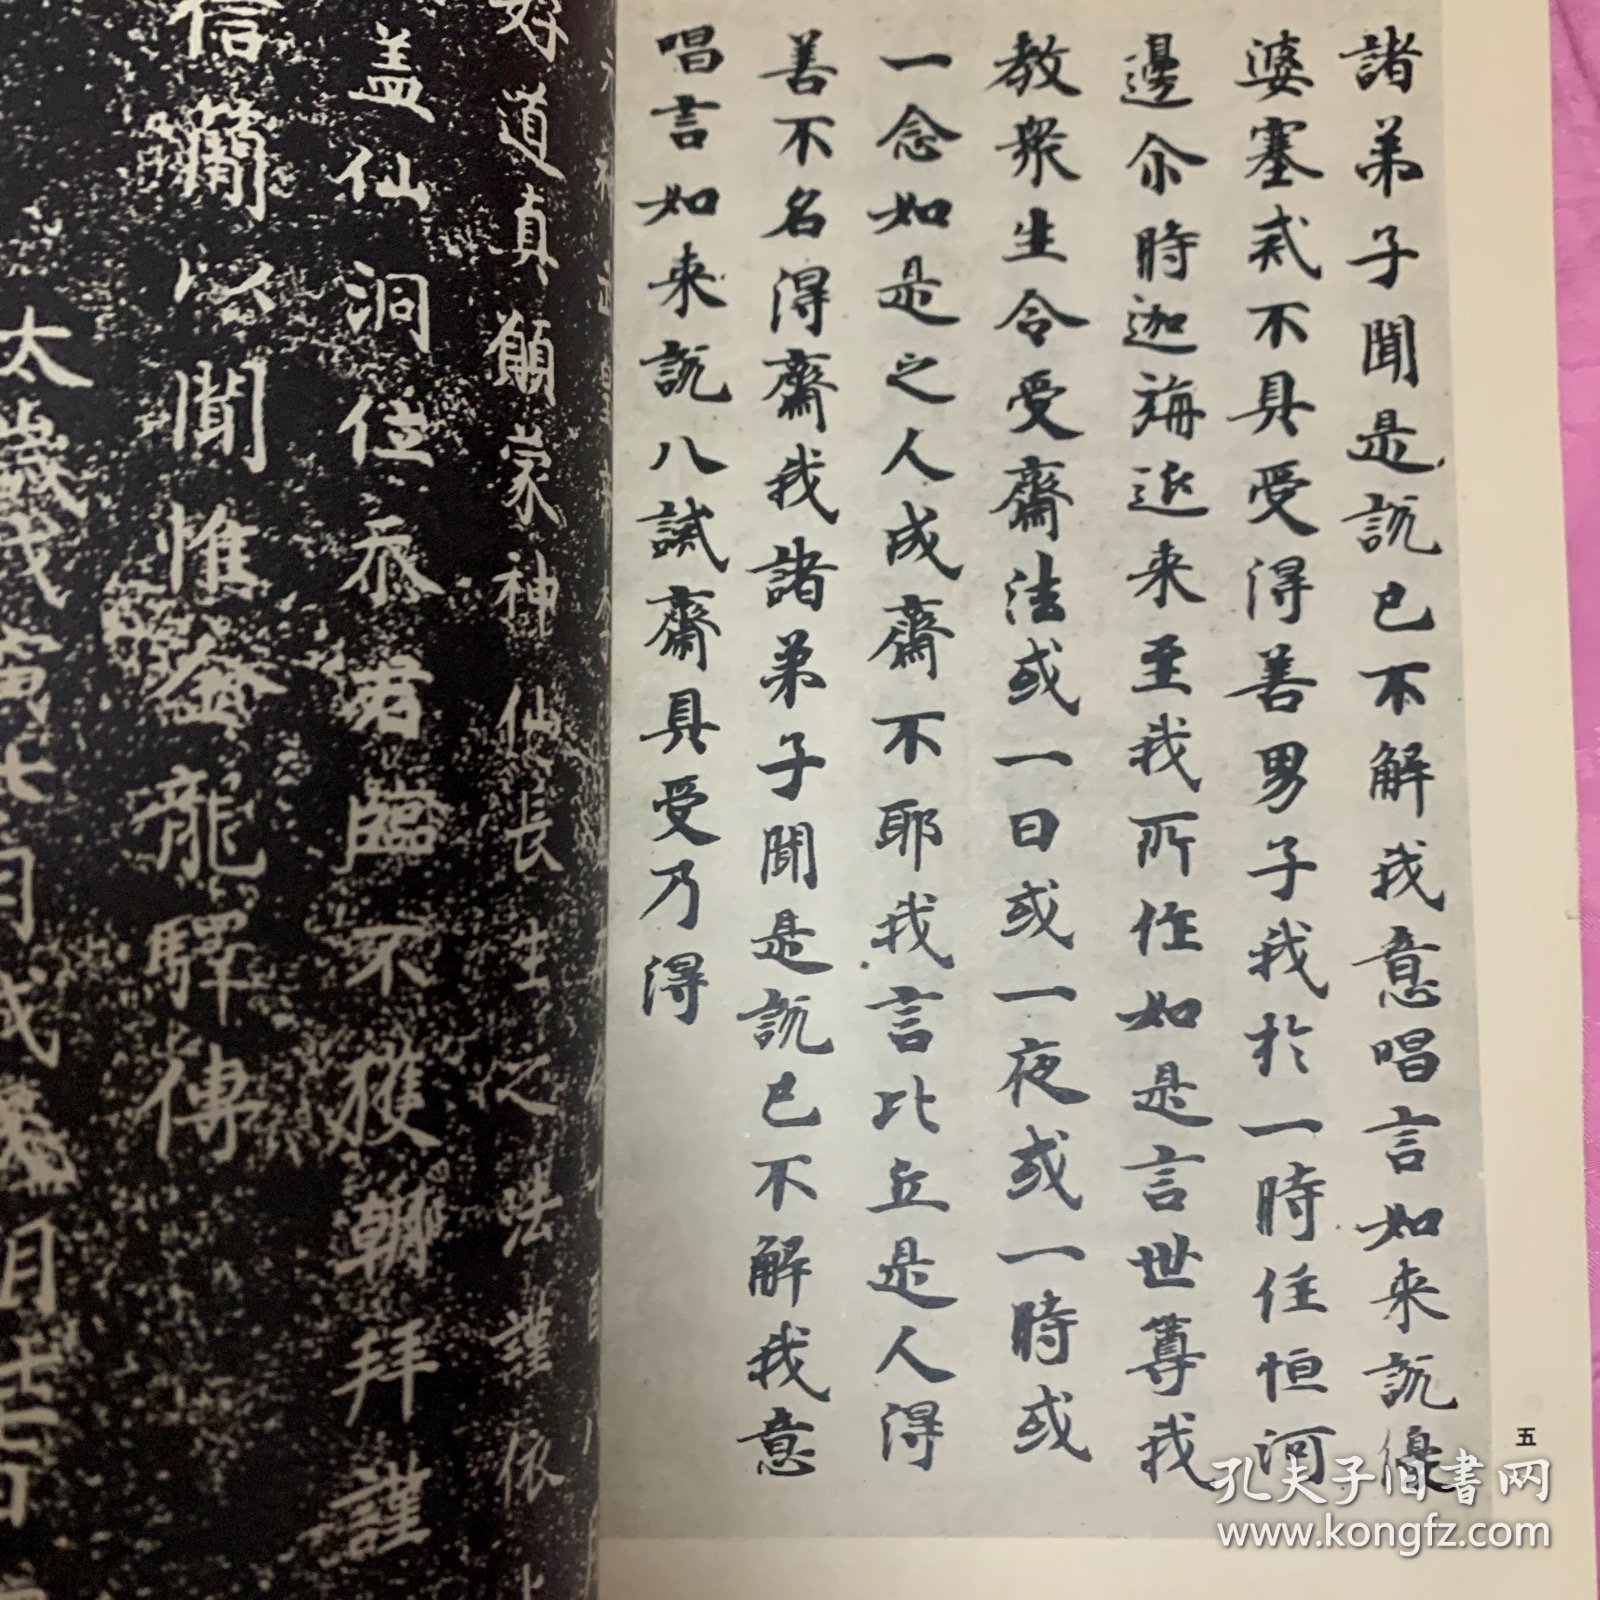 諸弟子聞是說已不解我意唱言如来說優
婆塞戒不具受得善男子我於一時住恒河
邊尒時迦旃延来至我所作如是言世尊我
教衆生令受齋法或一日或一夜或一時或
一念如是之人成齋不耶我言比丘是人得
善不名得齋我諸弟子聞是說已不解我意
唱言如来說八戒齋具受乃得
五
好道真願蒙神仙長生之法謹依上
盖仙洞位忝君臨不獲朝拜謹
信蘭以聞惟金龍驛傳
太歲
孔夫子旧書网
www.kongfz.com